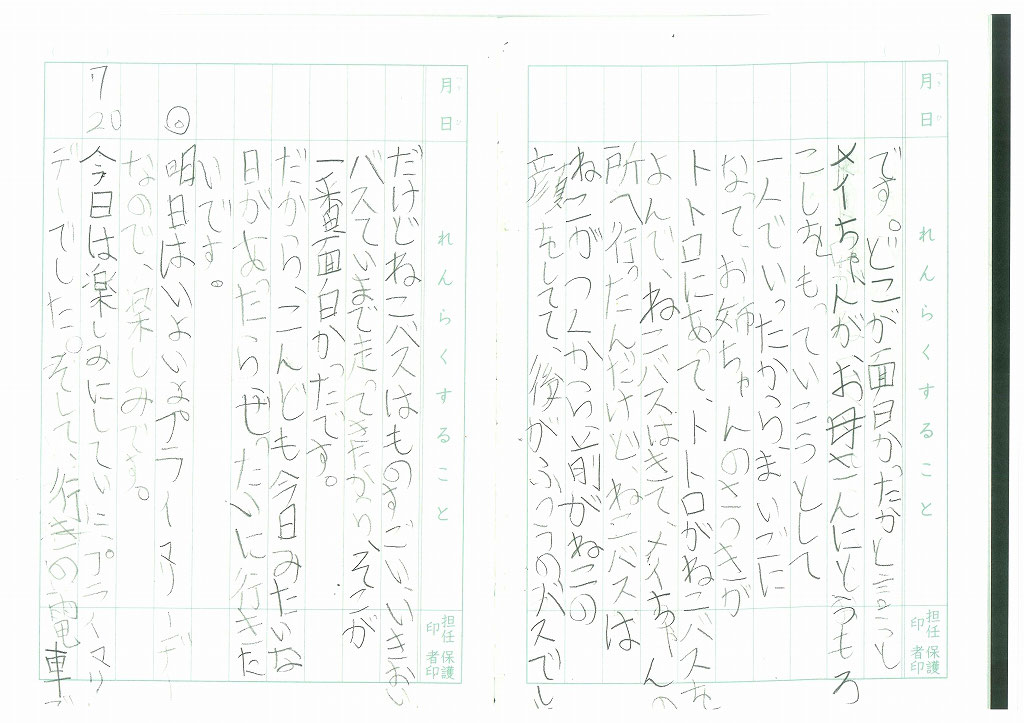 月 日
れんらくすること
担任印 保護者印
です。どこが面白かったかと言っし
メイちゃんがお母さんにとうもろ
こしをもっていこうとして
一人でいったからまいごに
なって、お姉ちゃんのさつきが
トトロにあって、トトロがねこバスを
よんで、ねこバスはきて、メイちゃんの
所へ行ったんだけど、ねこバスは
ねこがつくから、前がねこの
顔をしてて、後がふつうのバスでし
月 日
れんらくすること
担任印 保護者印
だけどねこバスはものすごいいきおい
バスていままで走ってきたから、そこが
一番面白かったです。
だから、こんども今日みたいな
日があったらぜったいに行きた
いです。
◎ 明日はいよいよプライマリーデー
なので、楽しみです。
7 20 今日は楽しみにしていたプライマリ
デーでした。そして、行きの電車で